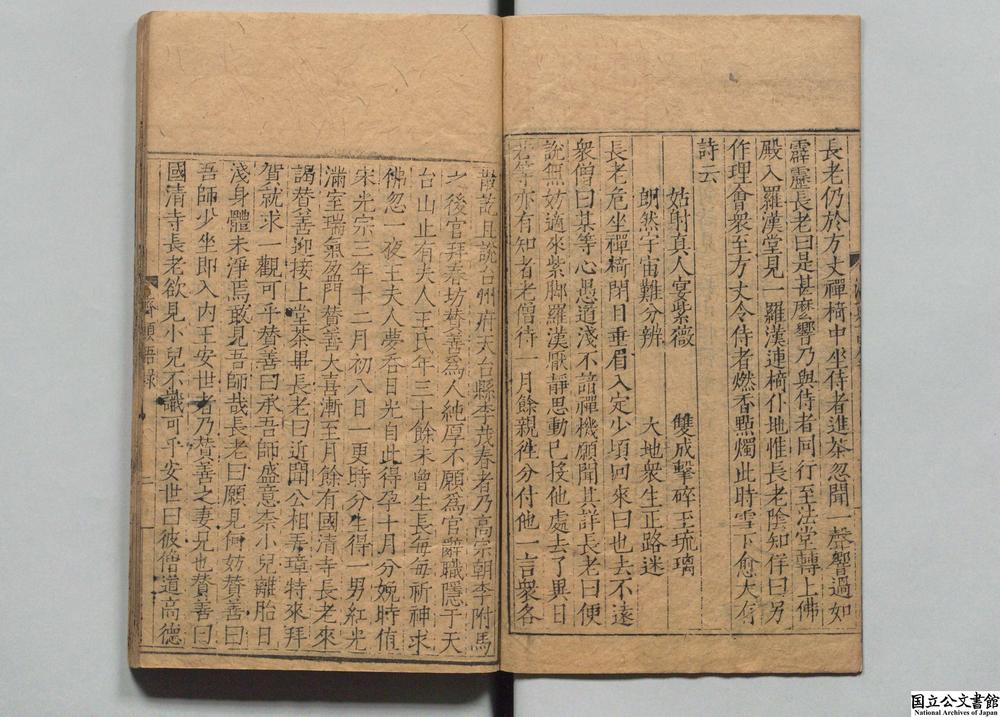 長老仍於方丈禪椅中坐侍者進茶忽聞一聲響過如
霹靂長老曰是甚麽響乃與侍者同行至法堂轉上佛
殿入羅漢堂見一羅漢連椅仆地惟長老陰知佯曰另
作理會衆至方丈令侍者燃香㸃燭此時雪下愈大有
詩云
姑射真人宴紫薇 雙成擊碎玉琉璃
朗然宇宙難分辨 大地衆生正路迷
長老危坐禪椅閉目垂眉入定少頃回來曰也去不遠
衆僧曰某等心愚道淺不諳禪機願聞其詳長老曰便
說無妨適來紫脚羅漢厭靜思動已投他處去了異日
若等亦有知者老僧待一月餘親往分付他一言衆各
散訖且說台州府天台縣李茂春者乃高宗朝李附馬
之後官拜春坊賛善爲人純厚不願爲官辭職隱于天
台山止有夫人王氏年三十餘未曾生長每每祈神求
佛忽一夜王夫人夢吞日光自此得孕十月分娩時值
宋光宗三年十二月初八日一更時分生得一男紅光
滿室瑞氣盈門賛善大喜漸至月餘有國清寺長老來
謁賛善迎接上堂茶畢長老曰近聞公相弄璋特來拜
賀就求一觀可乎賛善曰承吾師盛意柰小兒離胎日
淺身體未淨焉敢見吾師哉長老曰願見何妨賛善曰
吾師少坐即入内王安世者乃賛善之妻兄也賛善曰
國清寺長老欲見小兒不識可乎安世曰彼僧道高德
濟顛語録
二
国立公文書館
National Archives of Japan